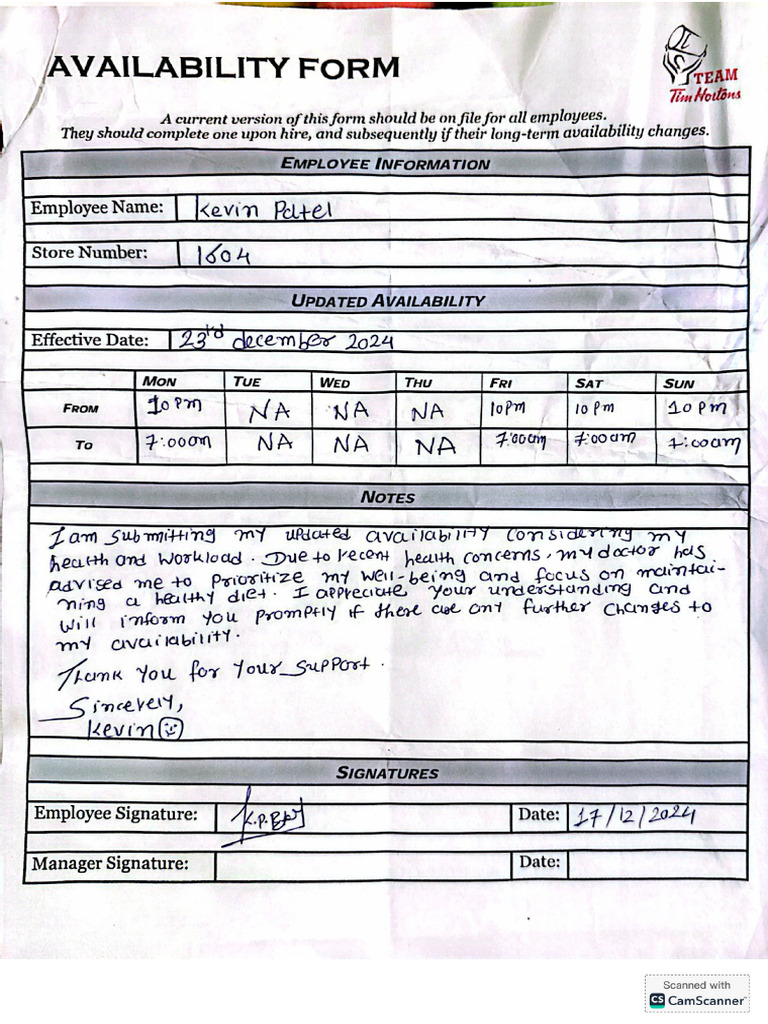 AVAILABILITY FORM
TEAM
Tim Hortons
A current version of this form should be on file for all employees.
They should complete one upon hire, and subsequently if their long-term availability changes.
EMPLOYEE INFORMATION
Employee Name: Kevin Patel
Store Number: 1604
UPDATED AVAILABILITY
Effective Date: 23rd december 2024
MON TUE WED THU FRI SAT SUN
FROM 10pm NA NA NA 10pm 10pm 10pm
TO 7:00am NA NA NA 7:00am 7:00am 7:00am
NOTES
I am submitting my updated availability considering my
health and workload. Due to recent health concerns, my doctor has
advised me to prioritize my well-being and focus on maintai-
ning a healthy diet. I appreciate your understanding and
will inform you promptly if there are any further changes to
my availability.
Thank you for your support.
Sincerely,
Kevin
SIGNATURES
Employee Signature: Date: 17/12/2024
Manager Signature: Date:
Scanned with
CS CamScanner